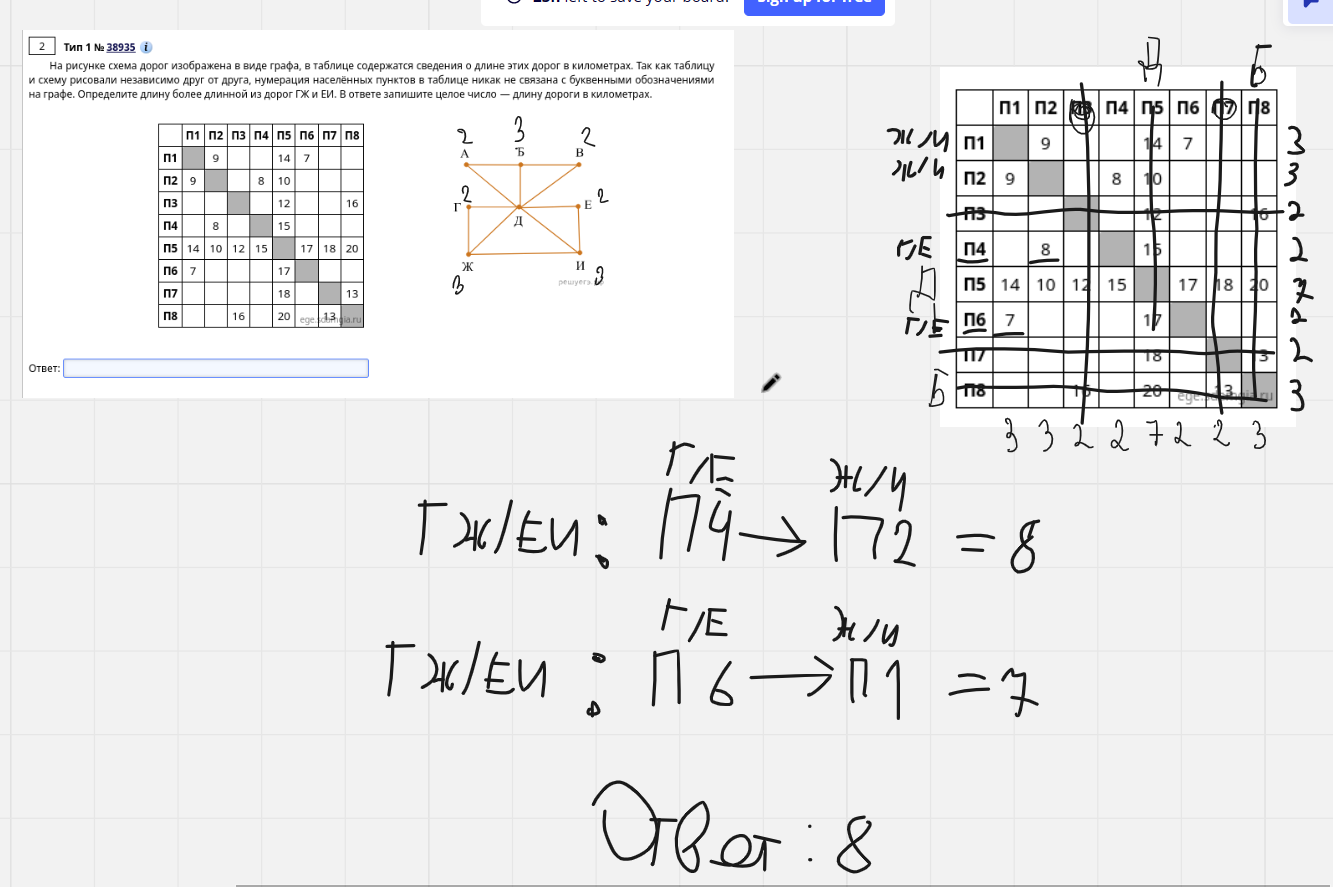 left to save your board!
Sign up for free
2 Тип 1 № 38935 i
На рисунке схема дорог изображена в виде графа, в таблице содержатся сведения о длине этих дорог в километрах. Так как таблицу
и схему рисовали независимо друг от друга, нумерация населённых пунктов в таблице никак не связана с буквенными обозначениями
на графе. Определите длину более длинной из дорог ГЖ и ЕИ. В ответе запишите целое число — длину дороги в километрах.
П1 П2 П3 П4 П5 П6 П7 П8
П1 9 14 7
П2 9 8 10
П3 12 16
П4 8 15
П5 14 10 12 15 17 18 20
П6 7 17
П7 18 13
П8 16 20 13
ege.sdamgia.ru
2 3 2
А Б В
2 Г Д Е 2
Ж И
3 3
решуегэ
Ответ:
Д Б
П1 П2 П3 П4 П5 П6 П7 П8
Ж/И П1 9 14 7 3
Ж/И П2 9 8 10 3
П3 12 16 2
Г/Е П4 8 15 2
Д П5 14 10 12 15 17 18 20 7
Г/Е П6 7 17 2
П7 18 3 2
Б П8 16 20 13 3
ege.sdamgia.ru
3 3 2 2 7 2 2 3
Г/Е Ж/И
ГЖ/ЕИ: П4 → П2 = 8
Г/Е Ж/И
ГЖ/ЕИ: П6 → П1 = 7
Ответ: 8